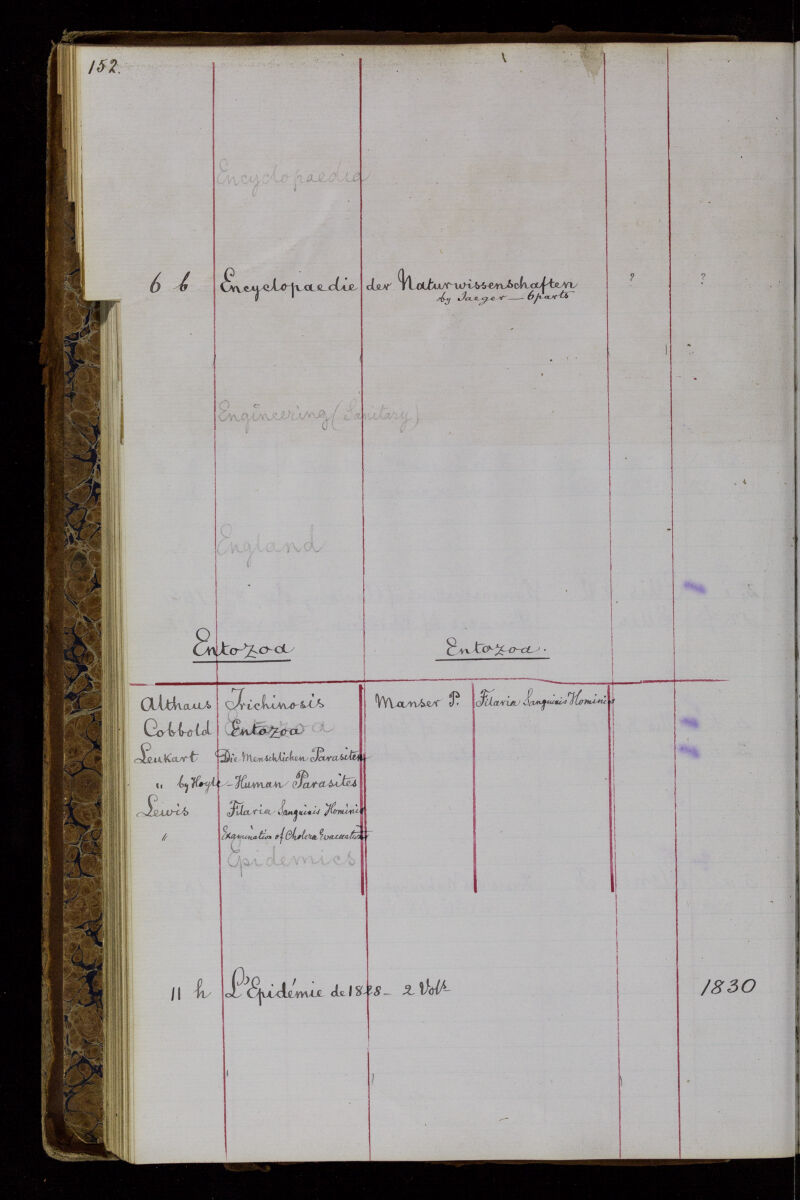 152.
Encyclopaedia
6 b Encyclopaedie der Naturwissenschaften ? ?
by Jaeger — 6 parts
Engineering (Sanitary)
England
Entozoa Entozoa.
Althaus Trichinosis Manser P. Filaria Sanguinis Hominis
Cobbold Entozoa
Entozoa
Leukart Die Menschlichen Parasiten
" by Hogle - Human Parasites
Lewis Filaria Sanguinis Hominis
" Examination of Cholera Evacuations
Epidemics
11 h L'Epidémie de 1828 - 2 Vols 1830